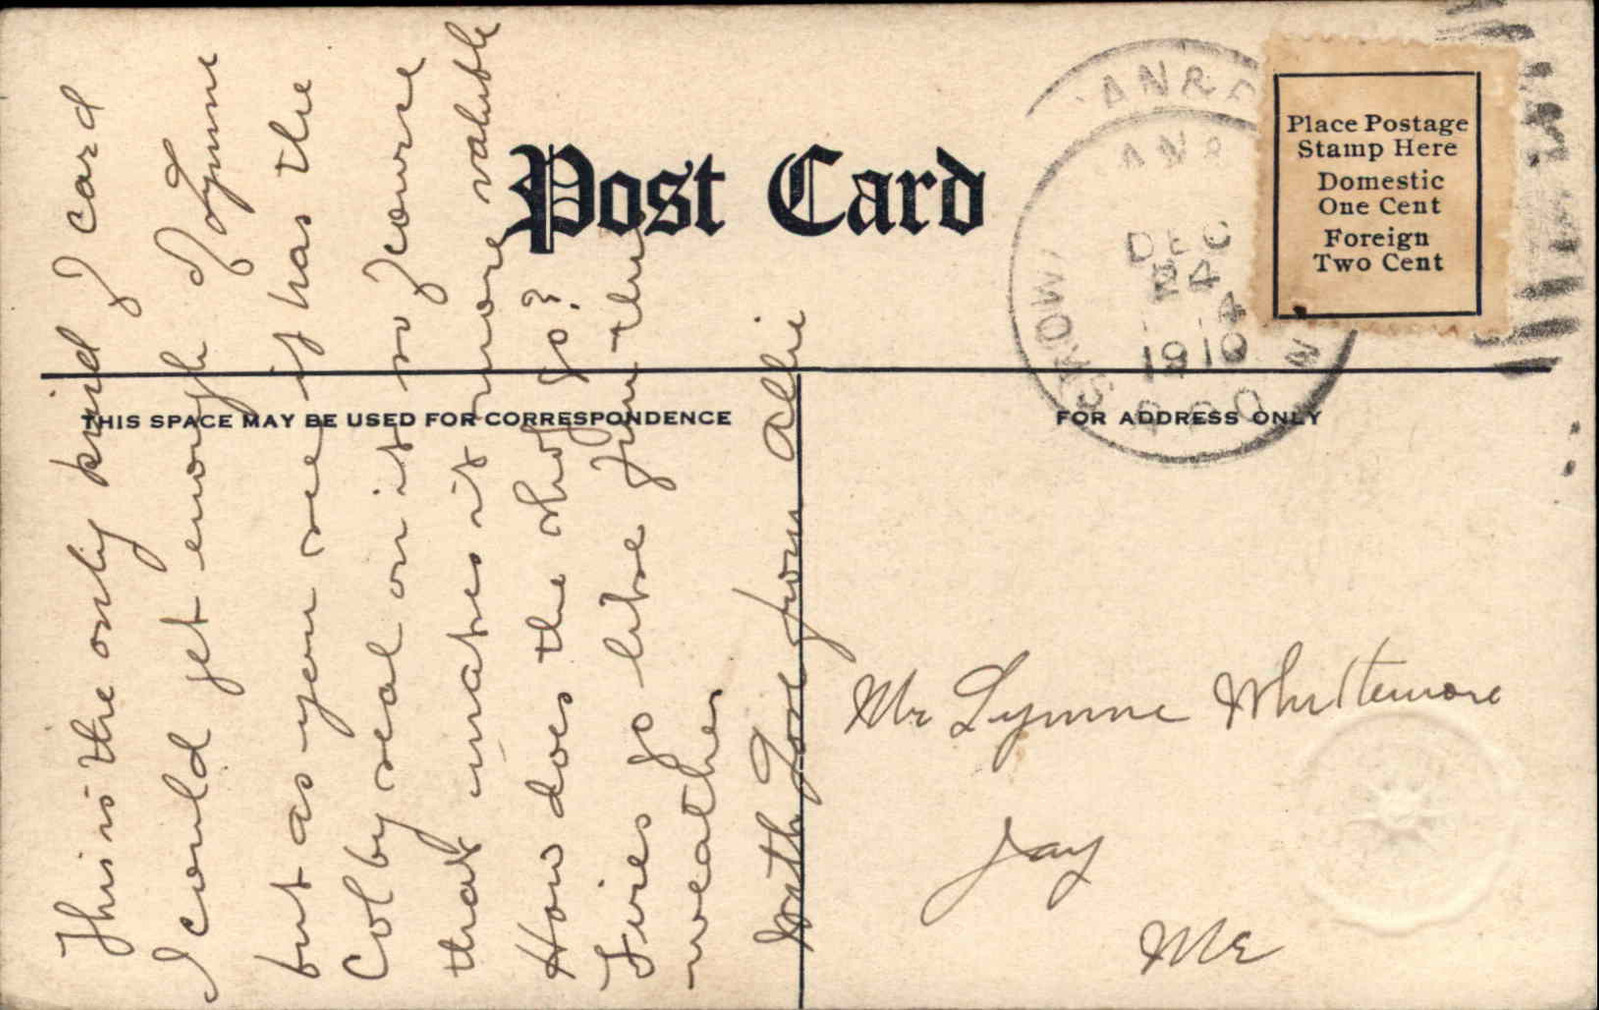 Post Card
Place Postage
Stamp Here
Domestic
One Cent
Foreign
Two Cent
DEC
24
4
1910
THIS SPACE MAY BE USED FOR CORRESPONDENCE
FOR ADDRESS ONLY
This is the only kind I card
I could get enough of Lynne
but as you see it has the
Colby seal on it so course
that makes it more valuble
How does the show go?
Fires go like fun this
weather
With Love from Allie
Mr Lynne Whittemore
Jay
Me